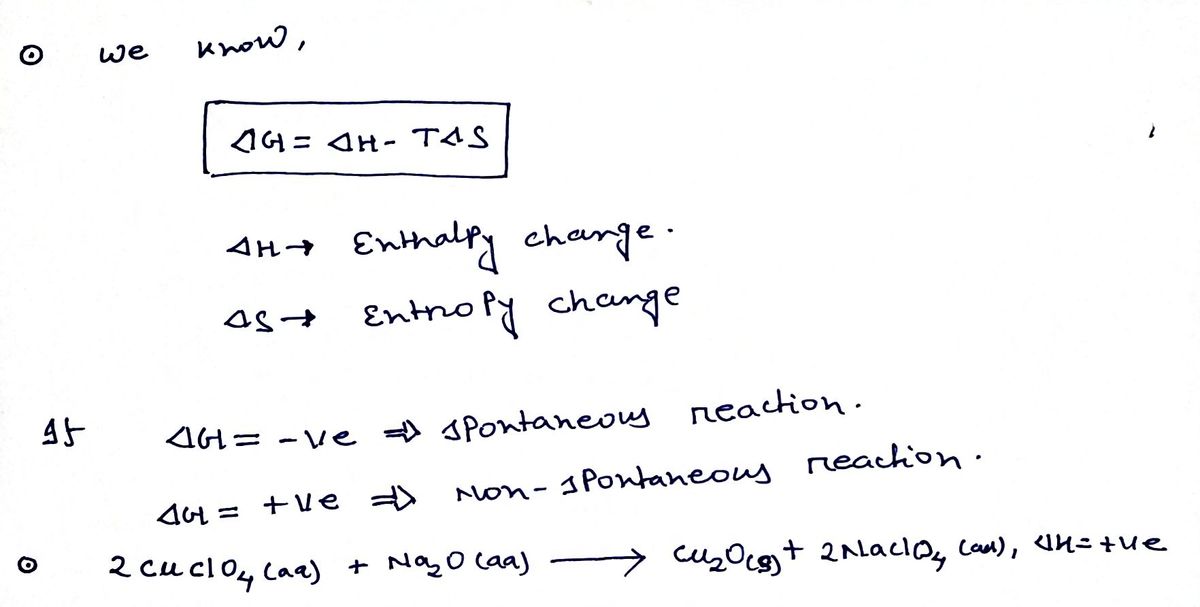 ⊙ we know,
ΔG = ΔH - TΔS
ΔH → Enthalpy change.
ΔS → Entropy change
If ΔG = -ve ⇒ spontaneous reaction.
ΔG = +ve ⇒ Non-spontaneous reaction.
⊙ 2CuClO₄(aq) + Na₂O(aq) ⟶ Cu₂O(s) + 2NaClO₄(aq), ΔH = +ve